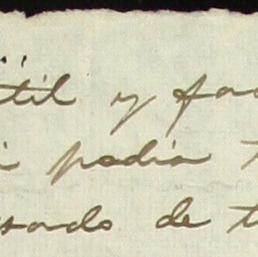 til y fac
i podia t
sado de t